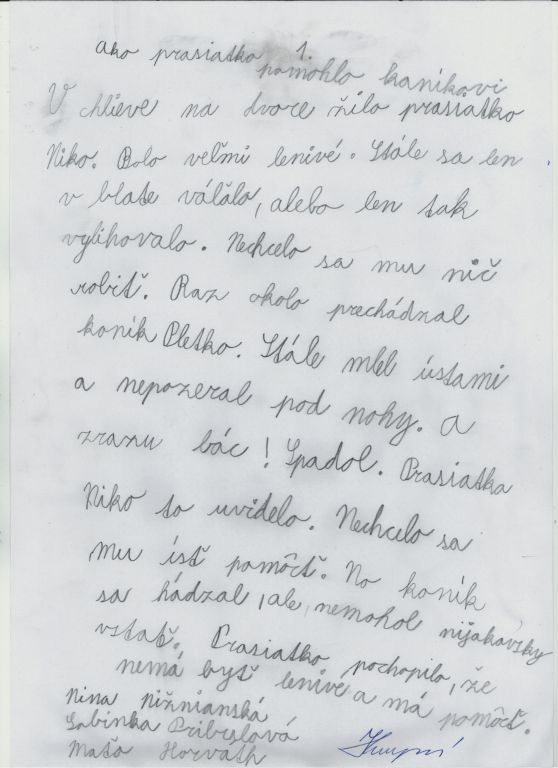 1.
Ako prasiatko pomohlo koníkovi
V chlieve na dvore žilo prasiatko
Niko. Bolo veľmi lenivé. Stále sa len
v blate váľalo, alebo len tak
vylihovalo. Nechcelo sa mu nič
robiť. Raz okolo prechádzal
koník Pletko. Stále mlel ústami
a nepozeral pod nohy. A
zrazu bác! Spadol. Prasiatka
Niko to uvidelo. Nechcelo sa
mu ísť pomôcť. No koník
sa hádzal, ale, nemohol nijakovsky
vstať. Prasiatko pochopilo, že
nemá byť lenivé a má pomôcť.
Nina Nižnianská
Sabinka Pribulová
Maťo Horvath